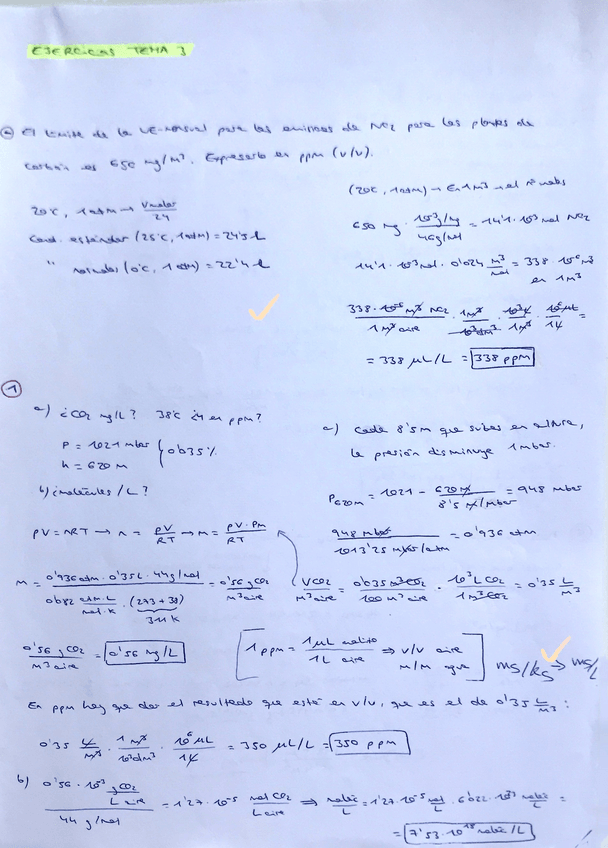 EJERCICIOS TEMA 3
a) El límite de la UE mensual para las emisiones de NO2 para las plantas de
carbón es 650 mg/m³. Expresarlo en ppm (v/v).
20ºC, 1 atm → Vmolar / 24
Cond. estándar (25ºC, 1 atm) = 24'5 L
" normales (0ºC, 1 atm) = 22'4 L
(20ºC, 1 atm) → En 1 m³ → el nº moles
650 mg · 10⁻³g/mg / 46g/mol = 14'1 · 10⁻³ mol NO2
14'1 · 10⁻³ mol · 0'024 m³/mol = 338 · 10⁻⁶ m³
en 1 m³
338 · 10⁻⁶ m³ NO2 / 1 m³ aire · 1 m³ / 10³dm³ · 10³L / 1 m³ · 10⁶ µL / 1L =
= 338 µL/L = 338 ppm
1
a) ¿CO2 mg/L? 38ºC ¿y en ppm?
P = 1021 mbar
h = 620 m } 0'035%
b) ¿moléculas/L?
PV = nRT → n = PV/RT → m = PV · Pm / RT
a) Cada 8'5 m que subes en altura,
la presión disminuye 1 mbar.
P620m = 1021 - 620 m / 8'5 m/mbar = 948 mbar
948 mbar / 1013'25 mbar/atm = 0'936 atm
m = 0'936 atm · 0'35L · 44g/mol / 0'082 atm·L/mol·K · (273 + 38) = 0'56 g CO2 / m³ aire
311 K
VCO2 / m³ aire = 0'035 m³ CO2 / 100 m³ aire · 10³ L CO2 / 1 m³ CO2 = 0'35 L/m³
0'56 g CO2 / m³ aire = 0'56 mg/L
[1 ppm = 1 µL soluto / 1 L aire ⇒ v/v aire
m/m agua] mg/kg → mg/L
En ppm hay que dar el resultado que está en v/v, que es el de 0'35 L/m³:
0'35 L/m³ · 1 m³ / 10³dm³ · 10⁶ µL / 1L = 350 µL/L = 350 ppm
b) 0'56 · 10⁻³ g CO2 / L aire / 44 g/mol = 1'27 · 10⁻⁵ mol CO2 / L aire ⇒ moléc/L = 1'27 · 10⁻⁵ mol/L · 6'022 · 10²³ moléc/L =
= 7'53 · 10¹⁸ moléc/L